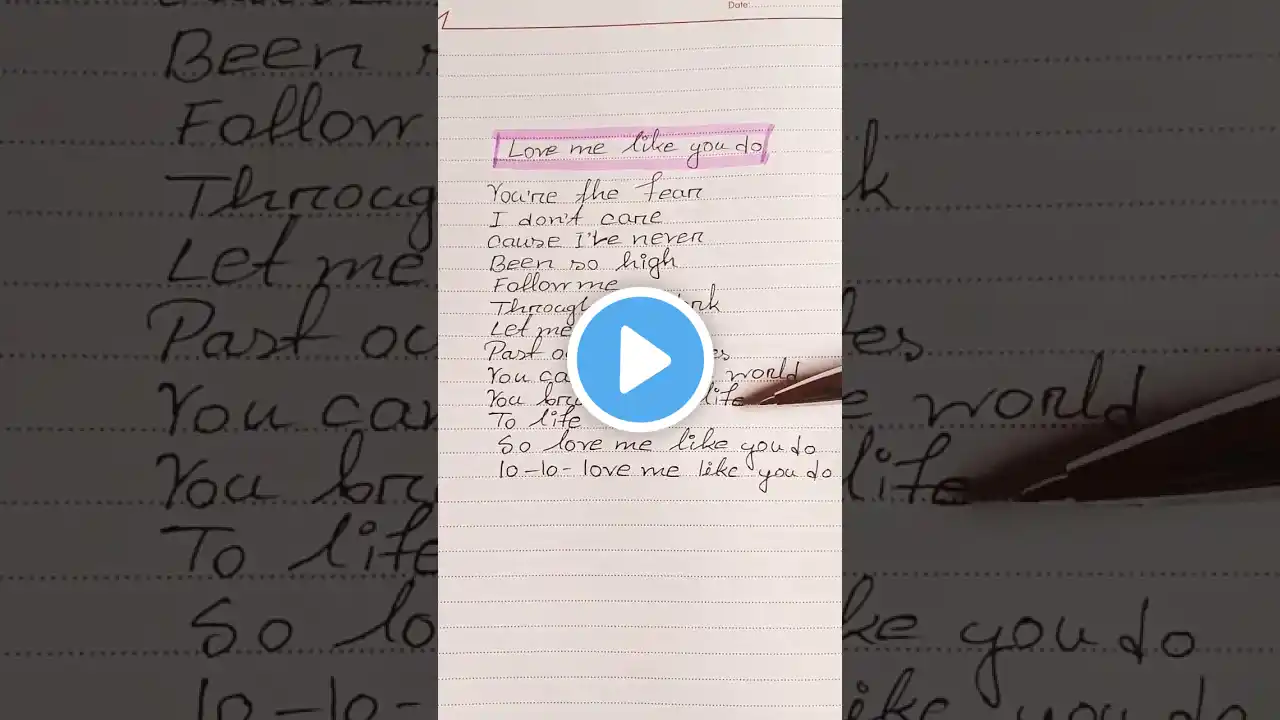 Date:
Love me like you do
You're the fear
I don't care
cause I've never
Been so high
Follow me
Let me
Past
You world
You life
To life
So love me like you do
lo-lo-love me like you do